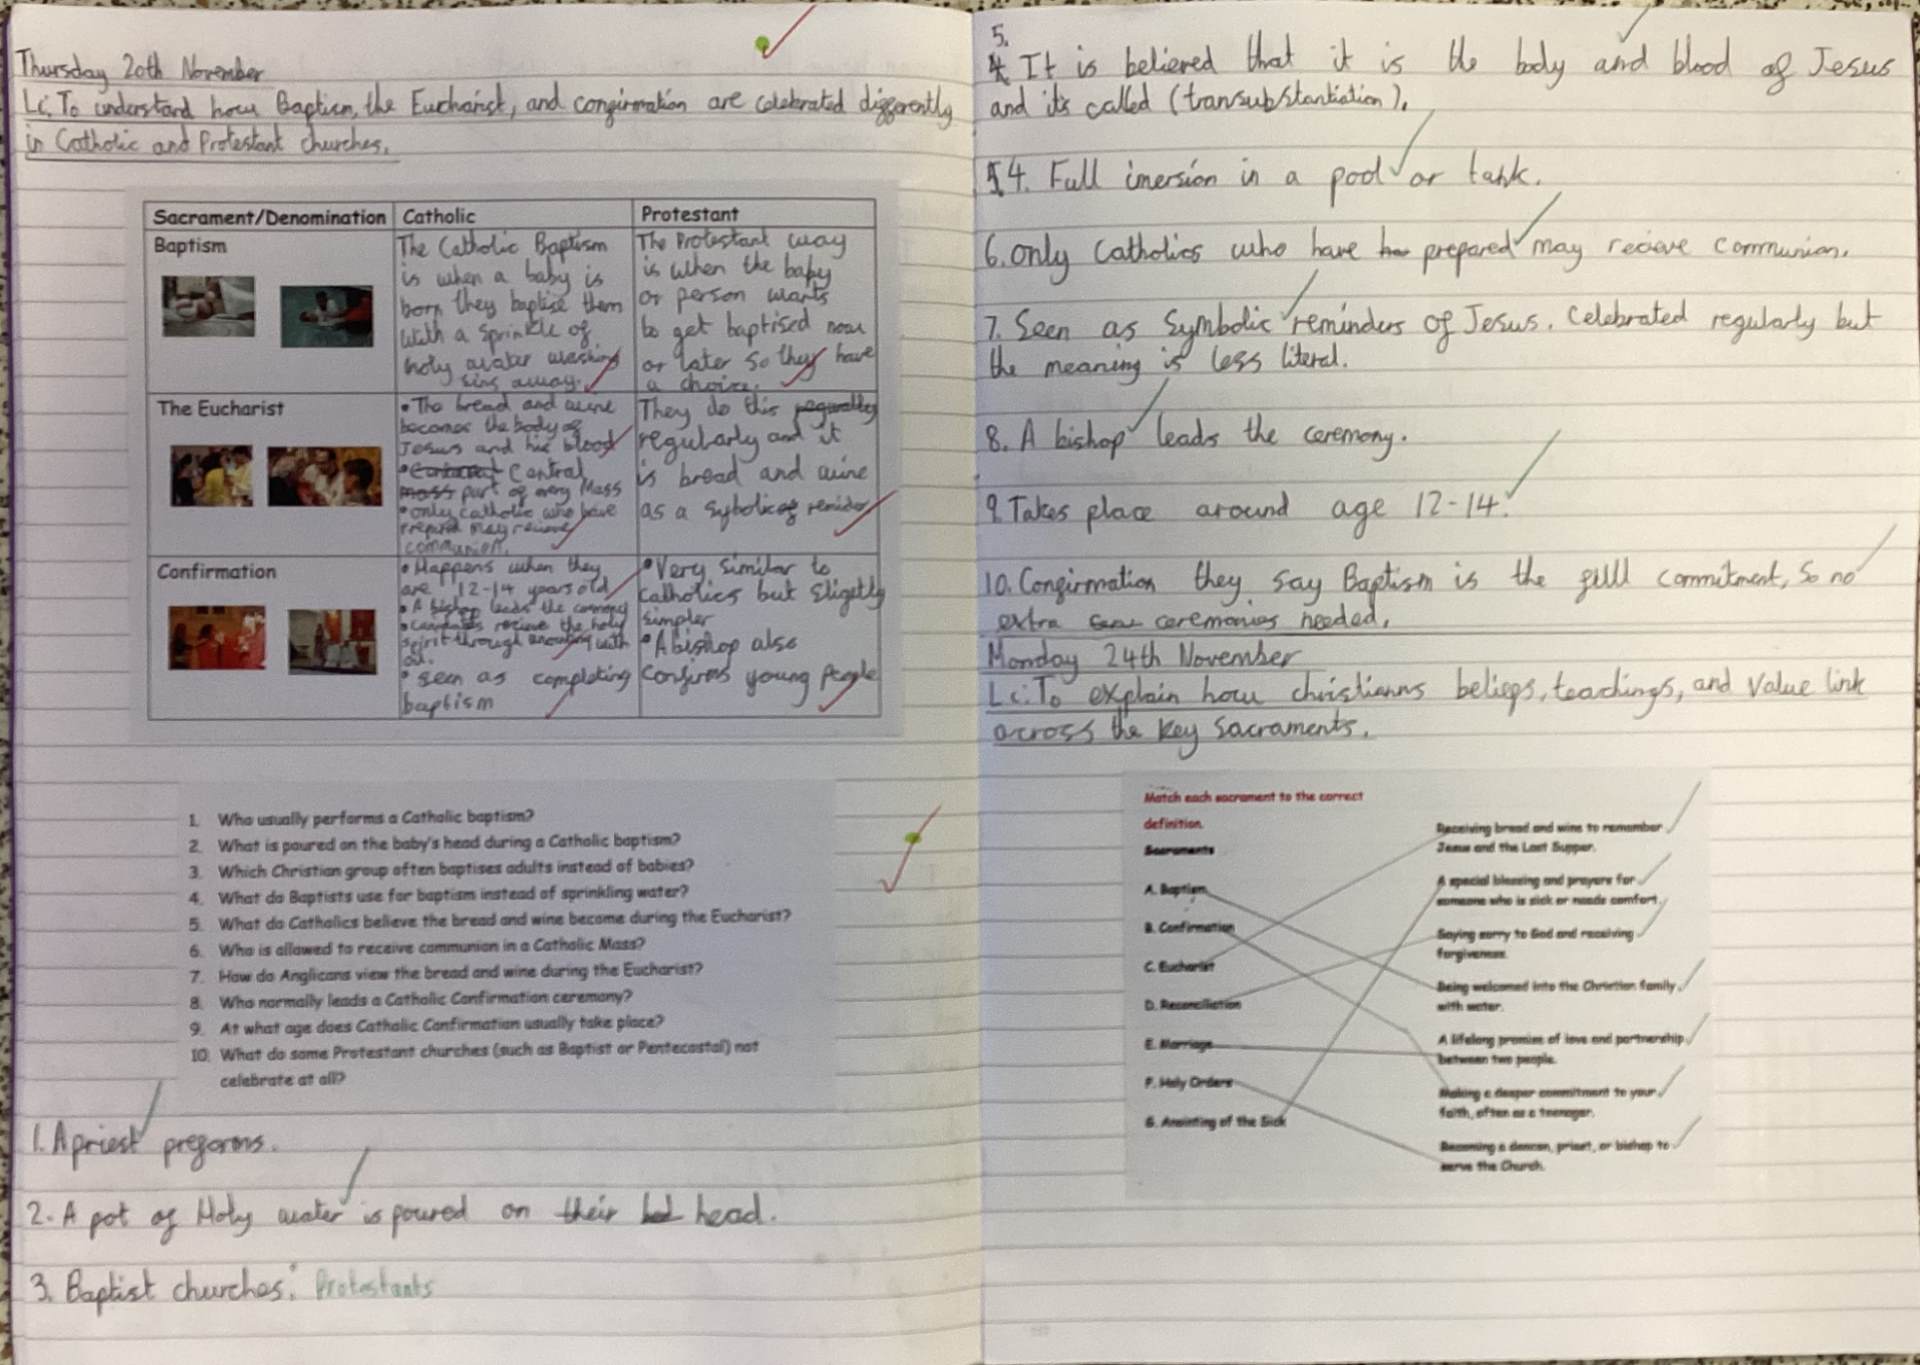 Thursday 20th November
L.C: To understand how Baptism, the Eucharist, and confirmation are celebrated differently
in Catholic and Protestant churches.
Sacrament/Denomination
Catholic
Protestant
Baptism
The Catholic Baptism
is when a baby is
born they baptise them
with a sprinkle of
holy water washing
sins away.
The Protestant way
is when the baby
or person wants
to get baptised now
or later so they have
a choice.
The Eucharist
• The bread and wine
becomes the body of
Jesus and his blood
• Central
mass part of every Mass
• only catholic who have
prepared may recieve
communion.
They do this
regularly and it
is bread and wine
as a sybolic remider
Confirmation
• Happens when they
are 12-14 years old
• A bishop leads the
• Candidates recieve the holy
spirit through with
oil.
• Seen as completing
baptism
• Very similar to
catholics but
simpler
• A bishop also
confirms young people
1. Who usually performs a Catholic baptism?
2. What is poured on the baby's head during a Catholic baptism?
3. Which Christian group often baptises adults instead of babies?
4. What do Baptists use for baptism instead of sprinkling water?
5. What do Catholics believe the bread and wine become during the Eucharist?
6. Who is allowed to receive communion in a Catholic Mass?
7. How do Anglicans view the bread and wine during the Eucharist?
8. Who normally leads a Catholic Confirmation ceremony?
9. At what age does Catholic Confirmation usually take place?
10. What do some Protestant churches (such as Baptist or Pentecostal) not
celebrate at all?
1. A priest preforms.
2. A pot of Holy water is poured on their head.
3. Baptist churches. Protestants
5. It is believed that it is the body and blood of Jesus
and its called (transubstantiation).
4. Full imersion in a pool or tank.
6. only Catholics who have prepared may recieve communion.
7. Seen as Symbolic reminders of Jesus. Celebrated regularly but
the meaning is less literal.
8. A bishop leads the ceremony.
9. Takes place around age 12-14.
10. Confirmation they say Baptism is the full commitment, so no
extra ceremonies needed.
Monday 24th November
L.C: To explain how christianns beliefs, teachings, and value link
across the key sacraments.
Match each sacrament to the correct
definition.
Sacraments
A. Baptism
B. Confirmation
C. Eucharist
D. Reconciliation
E. Marriage
F. Holy Orders
G. Anointing of the Sick
Receiving bread and wine to remember
Jesus and the Last Supper.
A special blessing and prayers for
someone who is sick or needs comfort.
Saying sorry to God and receiving
forgiveness.
Being welcomed into the Christian family
with water.
A lifelong promise of love and partnership
between two people.
Making a deeper commitment to your
faith, often as a teenager.
Becoming a deacon, priest, or bishop to
serve the Church.